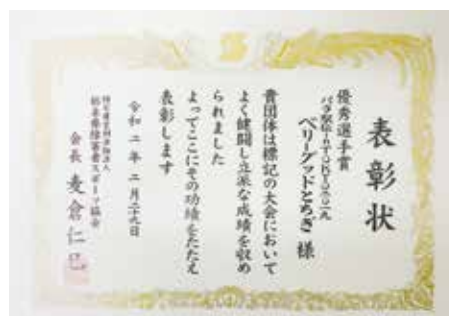 表彰状
優秀選手賞
パラ駅伝inTOKYO二〇一九
ベリーグッドとちぎ 様
貴団体は標記の大会において
よく健闘し立派な成績を収め
られました
よってここにその功績をたたえ
表彰します
令和二年 二月二十九日
特定非営利活動法人
栃木県障害者スポーツ協会
会長 麦倉仁巳